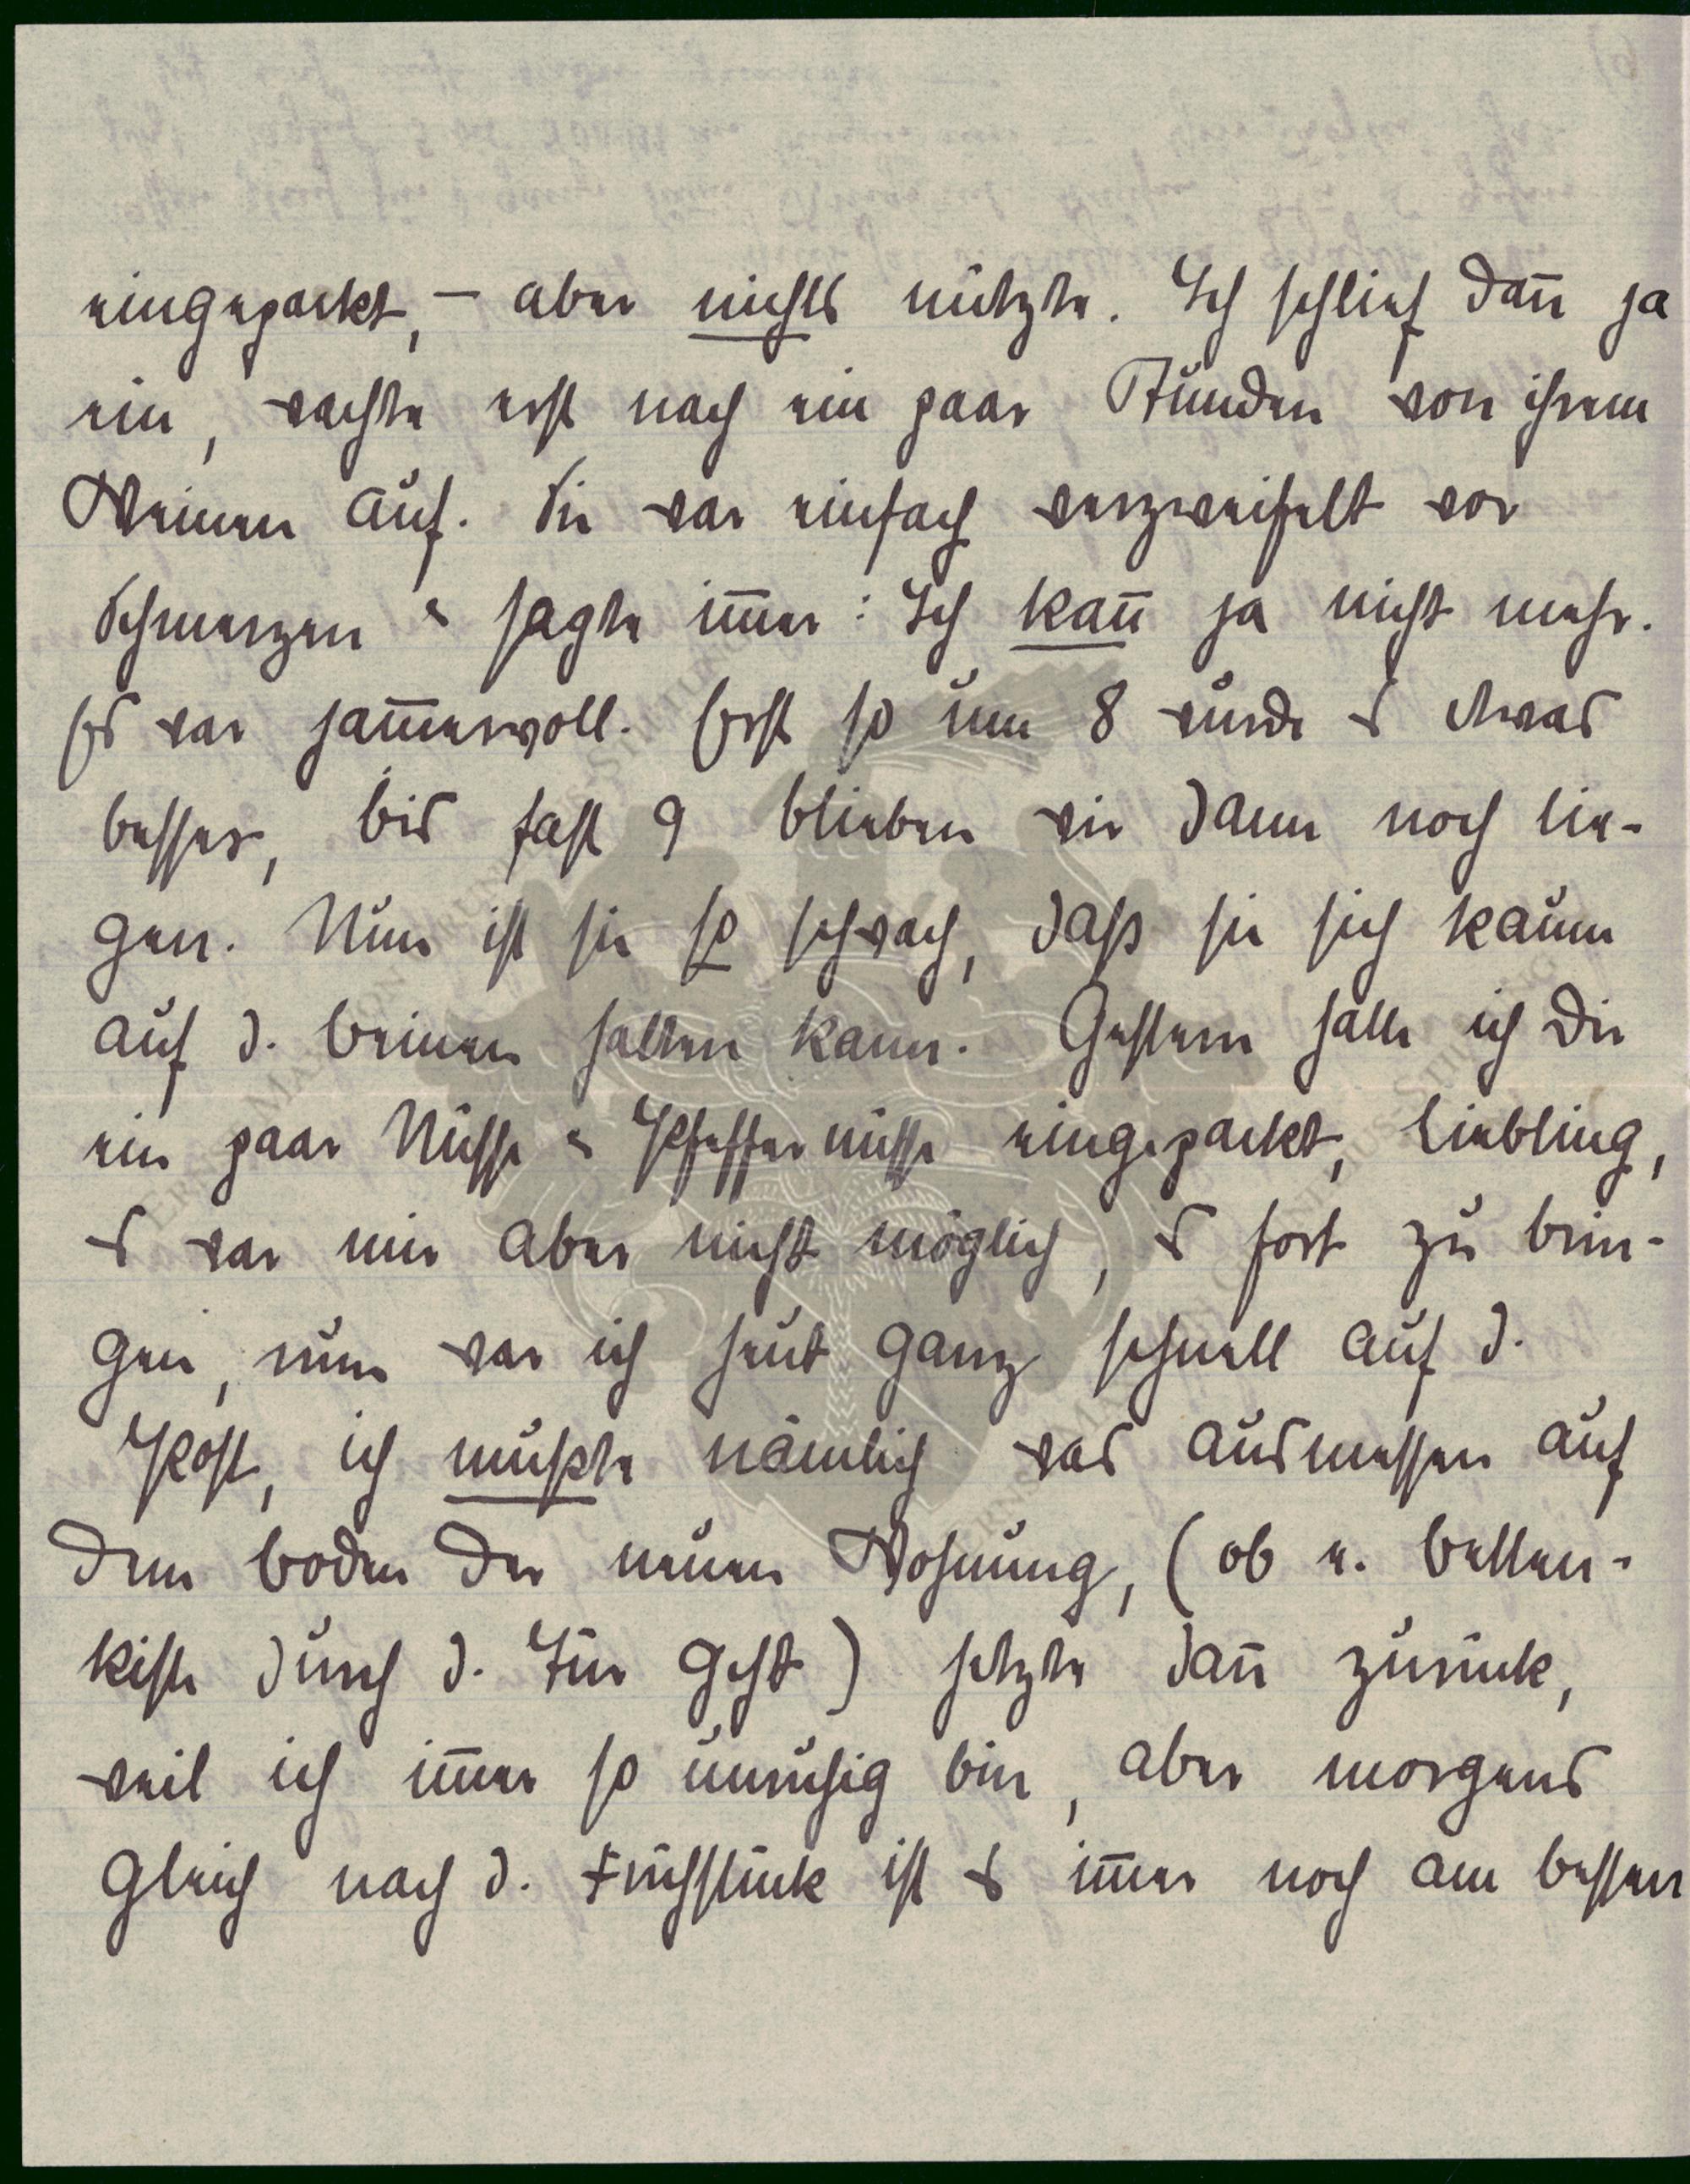 eingepackt, – aber nichts nützte. Ich schlief dan̄ ja
ein, wachte erst nach ein paar Stunden von ihrem
Weinen auf. Sie war einfach verzweifelt vor
Schmerzen & sagte im̄er: Ich kan̄ ja nicht mehr.
Es war jam̄ervoll. Erst so um 8 wurde es etwas
besser, bis fast 9 blieben wir dann noch lie-
gen. Nun ist sie so schwach, daß sie sich kaum
auf d. Beinen halten kann. Gestern hatte ich Dir
ein paar Nüsse & Pfeffernüsse eingepackt, Liebling,
es war mir aber nicht möglich, es fort zu brin-
gen, nun war ich heut ganz schnell auf d.
Post, ich mußte nämlich was ausmessen auf
dem Boden der neuen Wohnung, (ob e. Betten-
kiste durch d. Tür geht) hetzte dan̄ zurück,
weil ich im̄er so unruhig bin, aber morgens
gleich nach d. Frühstück ist es im̄er noch am besten